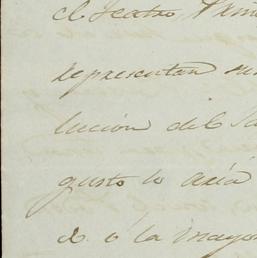 el Teatro,
representan su
lución del
gusto lo aría
d. ó la mayor